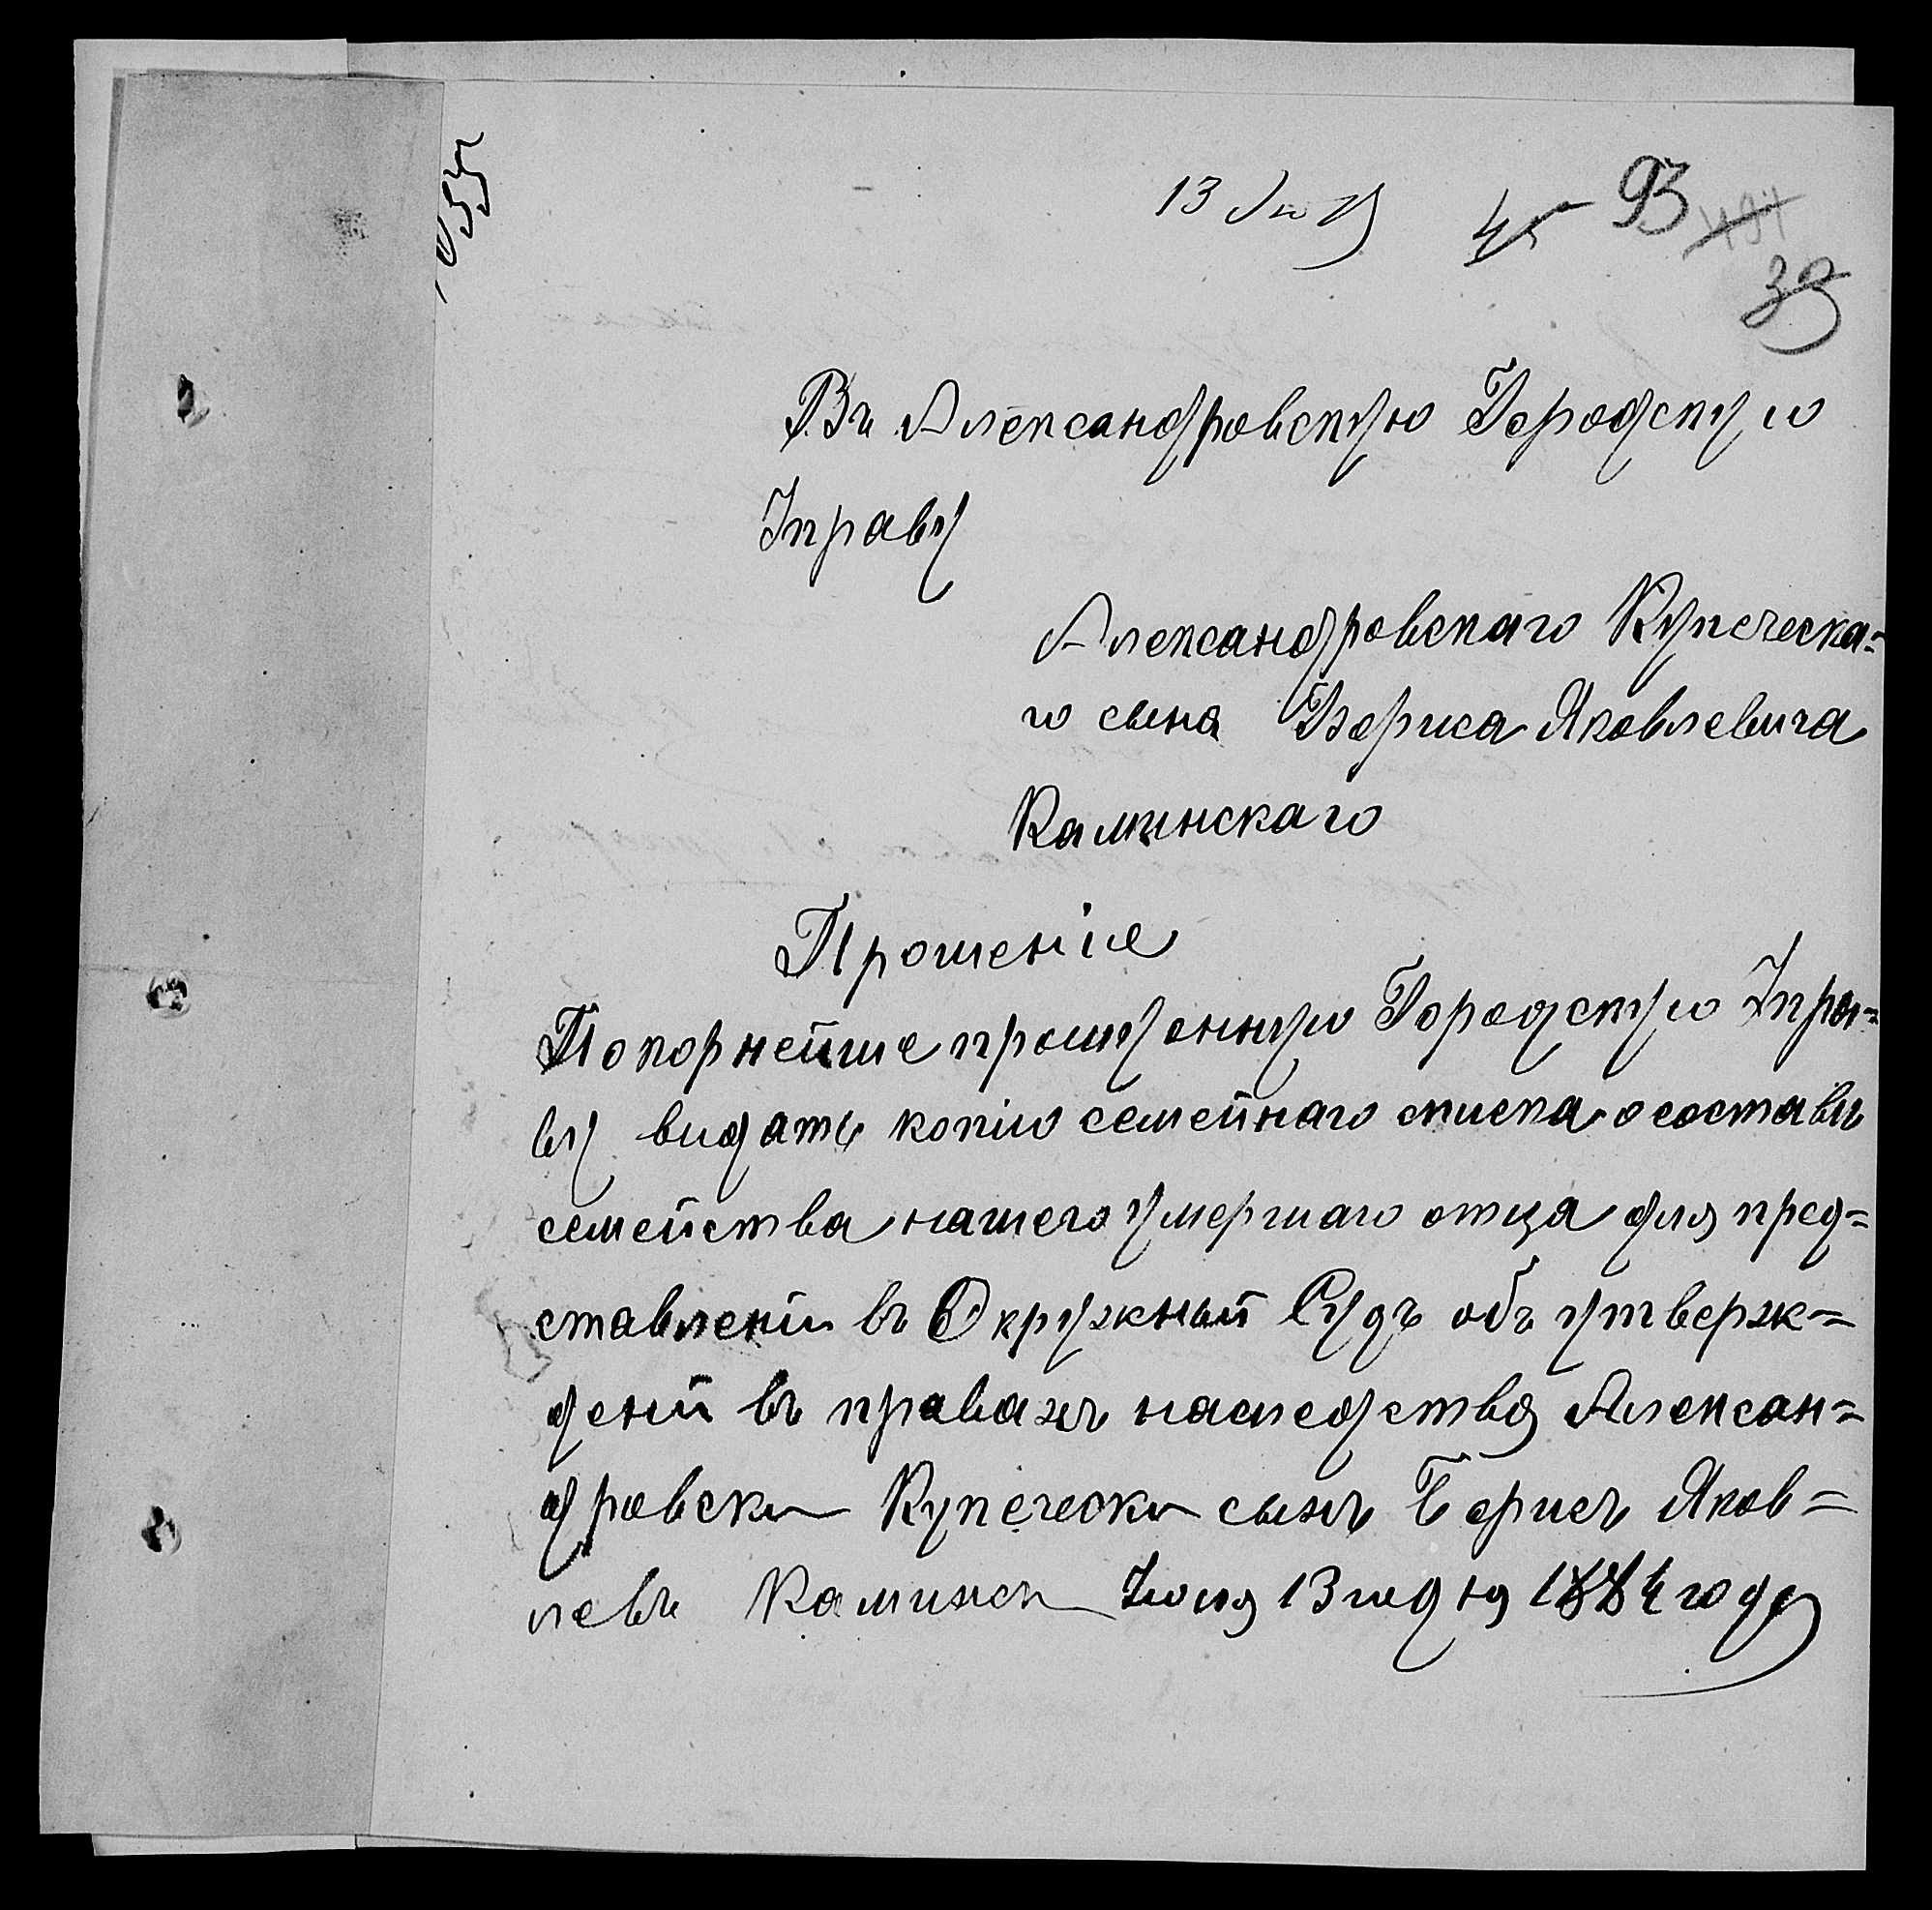 13 Июля
45 93 494
39
Въ Александровскую Городскую
Управу
Александровскаго Купеческа=
го сына Бориса Яковлевича
Каминскаго
Прошеніе
Покорнейше прошу онную Городскую Упра=
ву видать копію семейнаго списка о составѣ
семейства нашего умершаго отца для пред=
ставлении въ Окружный Судъ объ утверж=
дений въ правахъ наследства Алексан=
дровски Купечески сынъ Борисъ Яков=
левъ Каминск Июля 13 го дня 1884 году